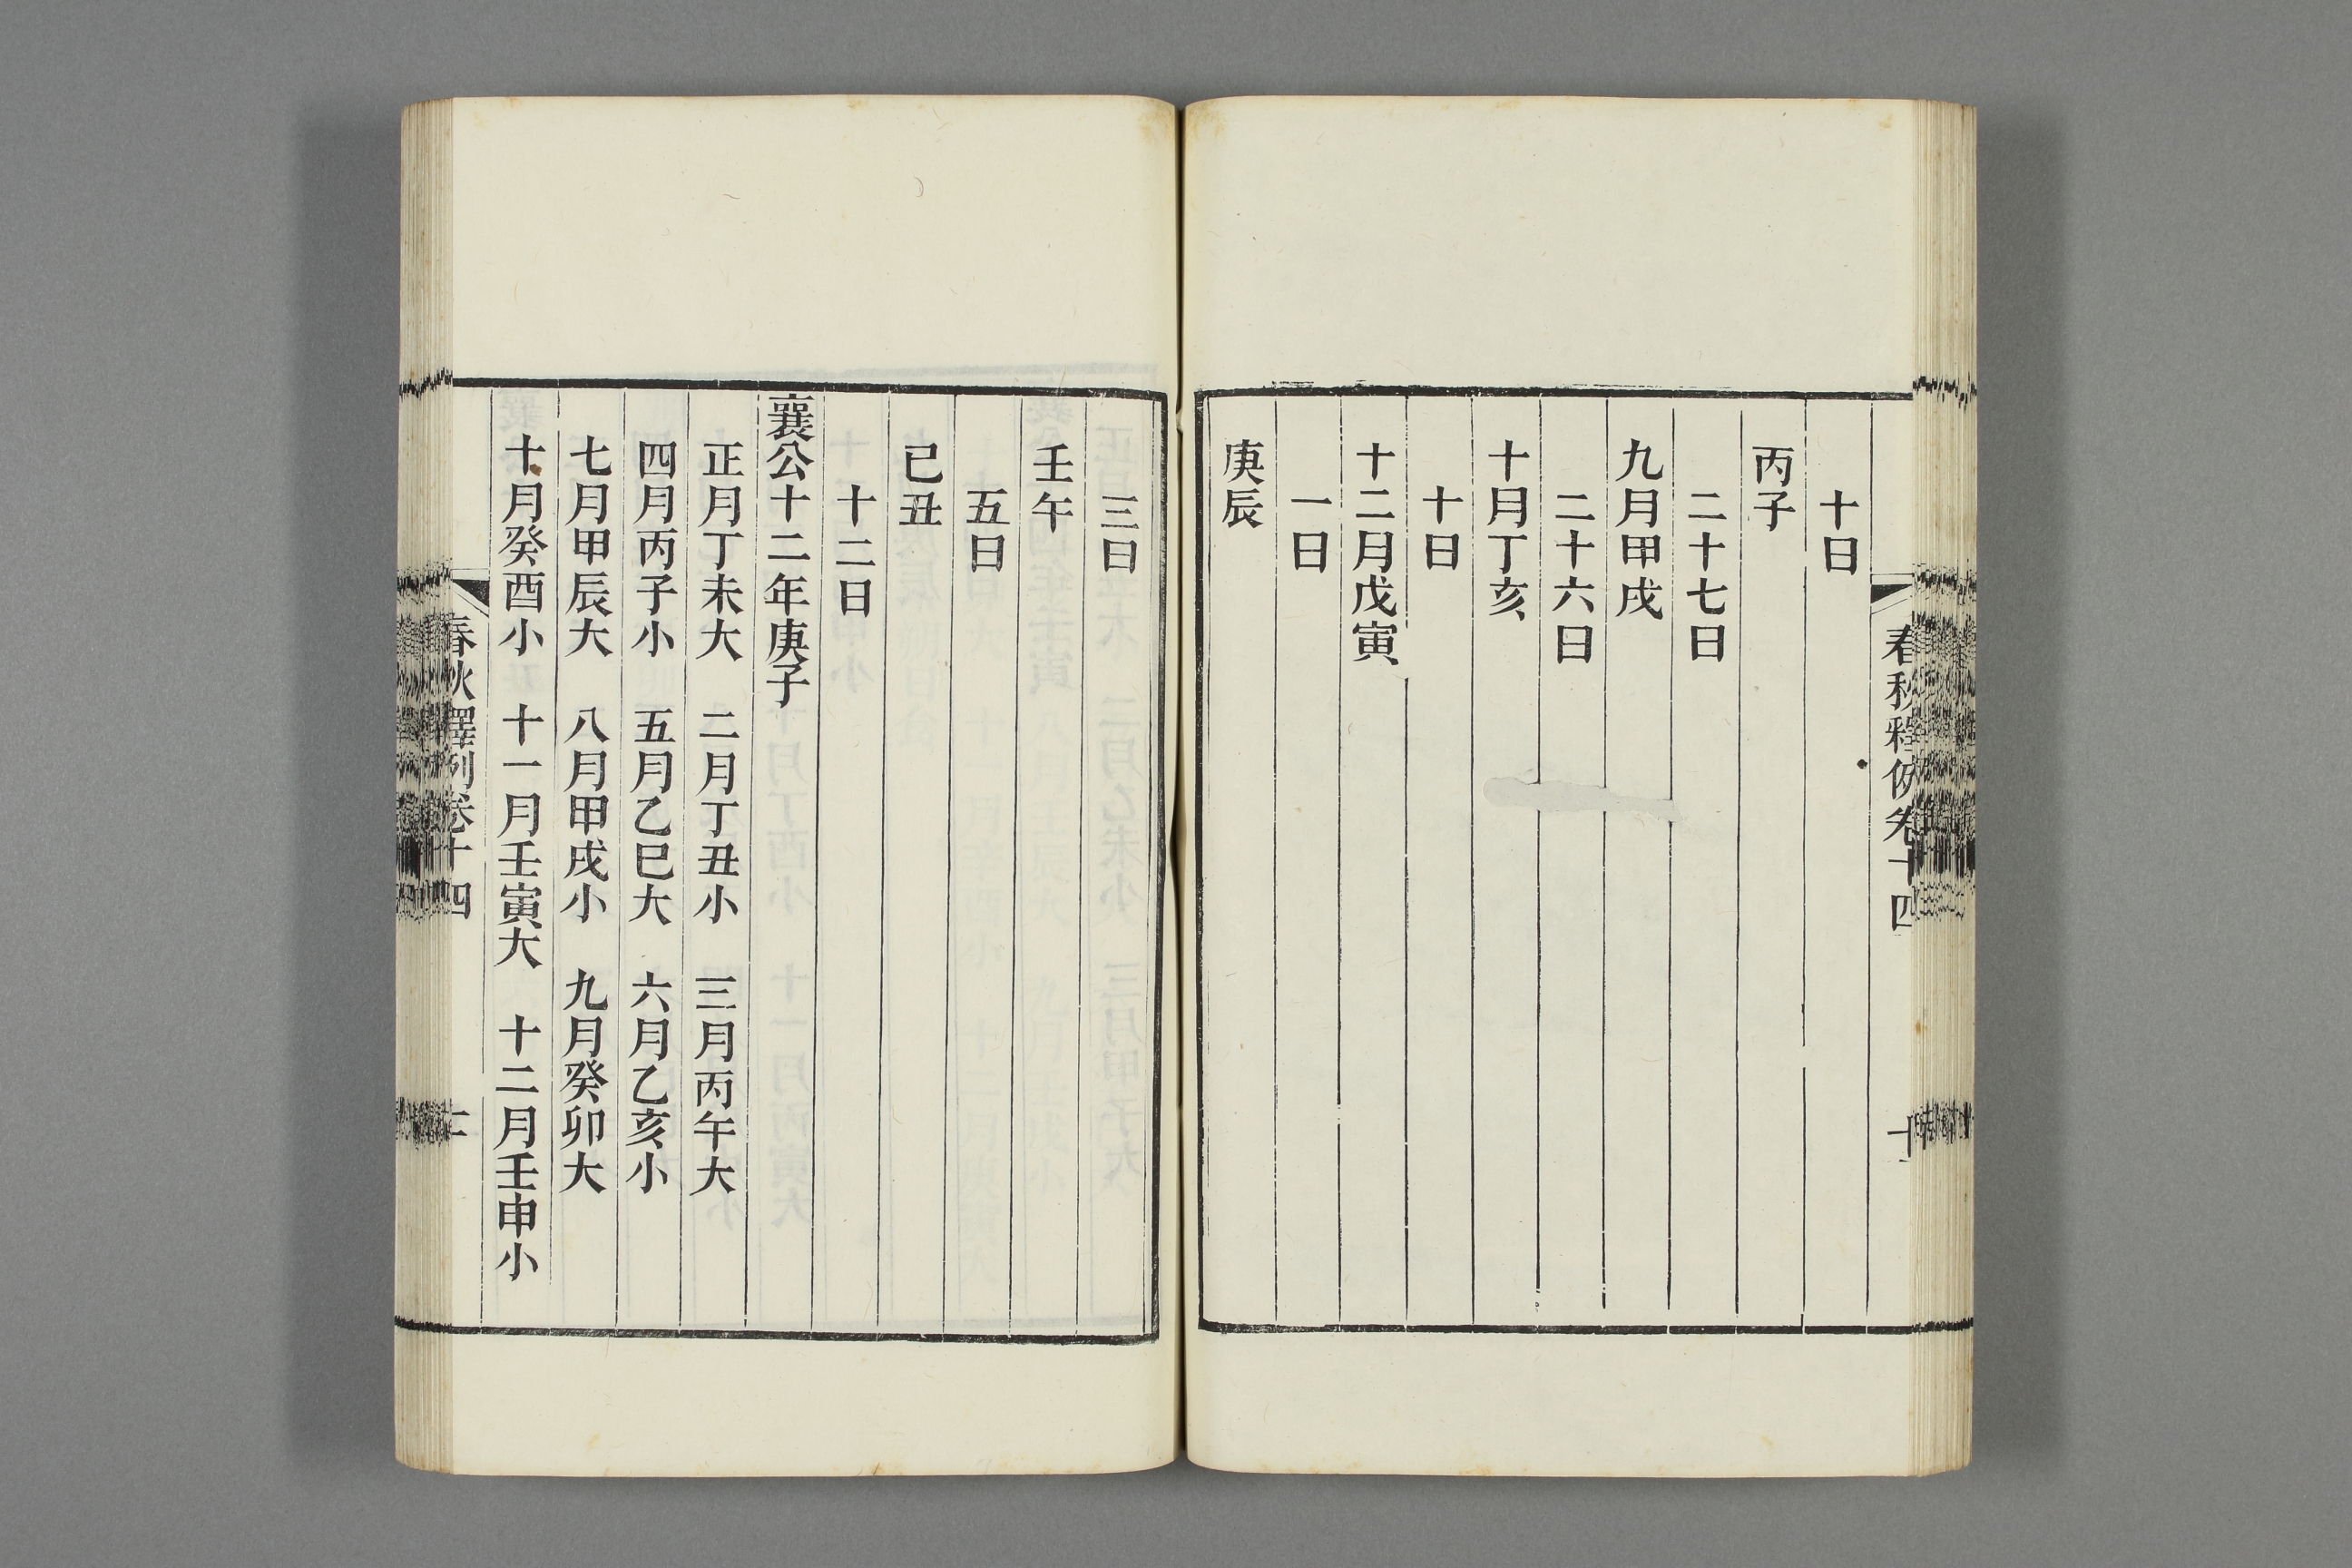 春秋釋例卷十四 十
十日
丙子
二十七日
九月甲戌
二十六日
十月丁亥
十日
十二月戊寅
一日
庚辰
三日
壬午
五日
己丑
十二日
襄公十二年庚子
正月丁未大 二月丁丑小 三月丙午大
四月丙子小 五月乙巳大 六月乙亥小
七月甲辰大 八月甲戌小 九月癸卯大
十月癸酉小 十一月壬寅大 十二月壬申小
春秋釋例卷十四